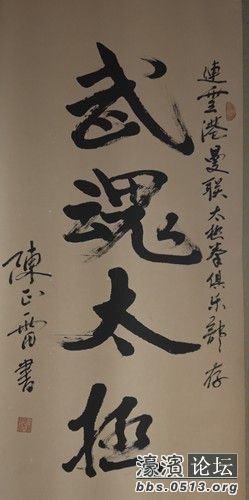 連雲港曼联太极拳俱乐部存
武魂太极
陳正雷書
濠滨论坛
bbs.0513.org